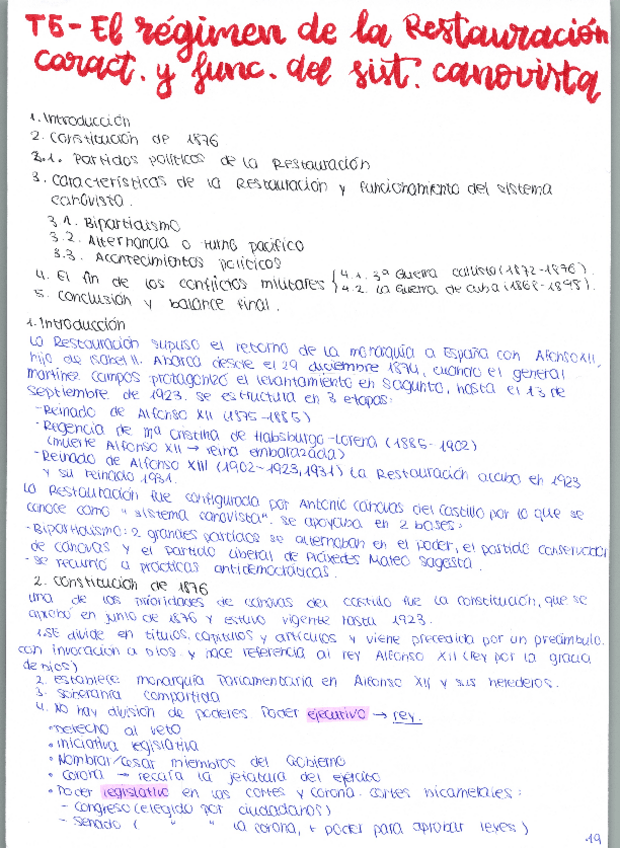 T5- El régimen de la Restauración
caract. y func. del sist. canovista
1. Introducción
2. Constitución de 1876
2.1. Partidos políticos de la Restauración
3. Características de la Restauración y funcionamiento del sistema
canovista.
3.1. Bipartidismo
3.2. Alternancia o turno pacífico
3.3. Acontecimientos políticos
4. El fin de los conflictos militares { 4.1. 3ª Guerra carlista (1872-1876).
4.2. La Guerra de Cuba (1868-1898).
5. Conclusión y balance final.
1. Introducción
La Restauración supuso el retorno de la monarquía a España con Alfonso XII,
hijo de Isabel II. Abarca desde el 29 diciembre 1874, cuando el general
Martínez Campos protagonizó el levantamiento en Sagunto, hasta el 13 de
septiembre de 1923. se estructura en 3 etapas:
-Reinado de Alfonso XII (1875-1885)
-Regencia de Mª Cristina de Habsburgo-Lorena (1885-1902)
(muerte Alfonso XII → reina embarazada)
-Reinado de Alfonso XIII (1902-1923, 1931) La Restauración acabó en 1923
y su reinado 1931.
La Restauración fue configurada por Antonio Cánovas del Castillo por lo que se
conoce como "sistema canovista". se apoyaba en 2 bases:
-Bipartidismo: 2 grandes partidos se alternaban en el poder, el partido conservador
de Cánovas y el partido liberal de Práxedes Mateo Sagasta.
-se recurrió a prácticas antidemocráticas.
2. Constitución de 1876
una de las prioridades de Cánovas del Castillo fue la constitución, que se
aprobó en junio de 1876 y estuvo vigente hasta 1923.
1. SE divide en títulos, capítulos y artículos y viene precedida por un preámbulo.
con invocación a Dios y hace referencia al rey Alfonso XII (rey por la gracia
de Dios)
2. establece monarquía parlamentaria en Alfonso XII y sus herederos.
3. soberanía compartida
4. No hay división de poderes Poder ejecutivo → rey.
• Derecho al veto
• Iniciativa legislativa
• Nombrar/cesar miembros del Gobierno
• Corona → recaía la jefatura del ejército
• Poder legislativo en las cortes y corona. Cortes bicamerales:
- Congreso (elegido por ciudadanos)
- Senado ( " " la corona, + poder para aprobar leyes)
19